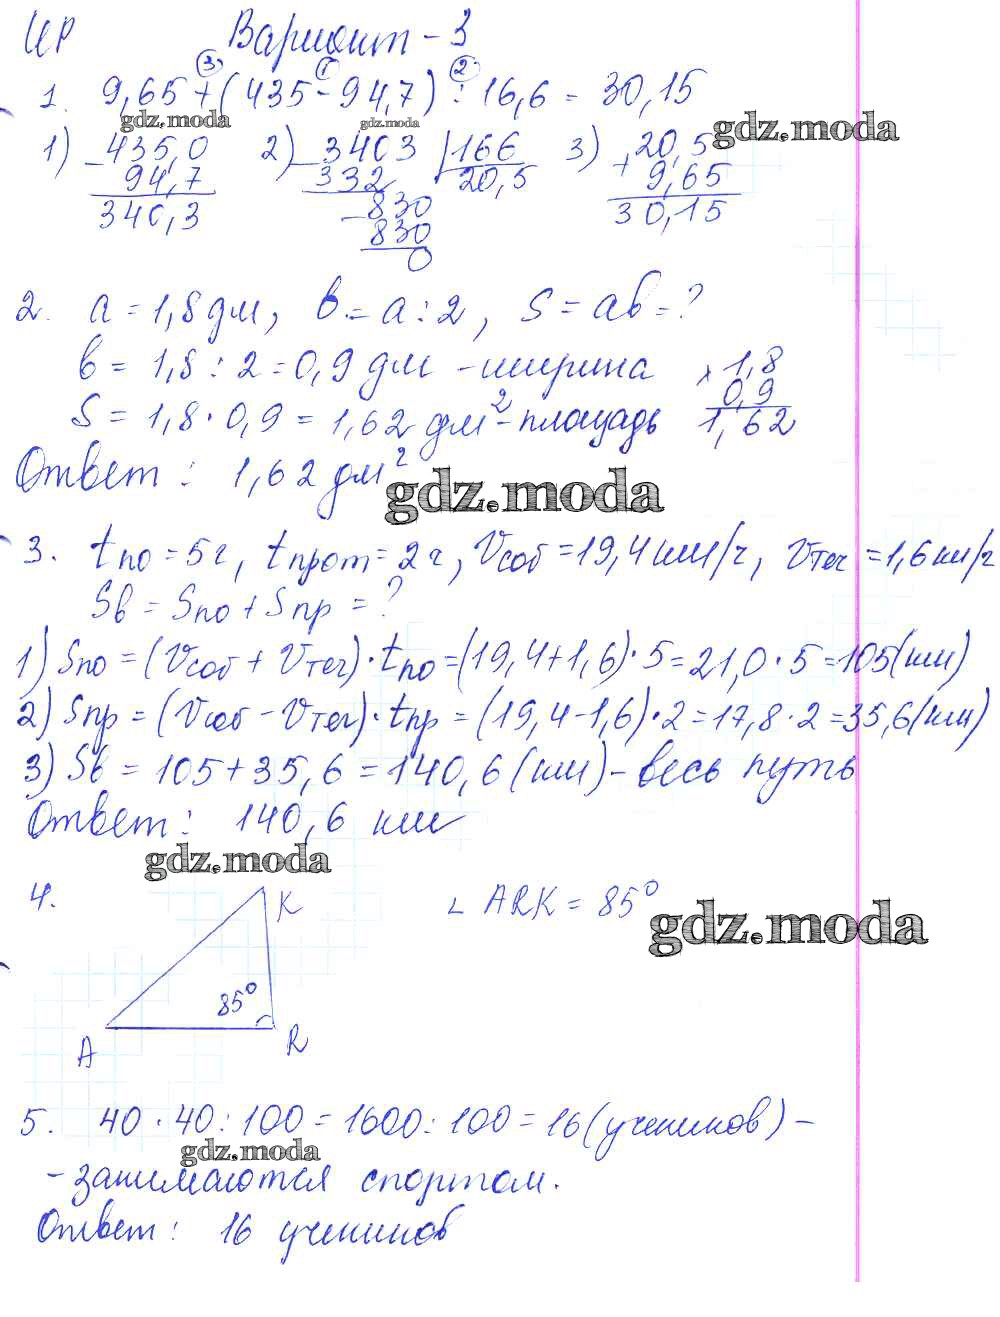 ИР Вариант - 3
③ ① ②
1. 9,65 + (435 - 94,7) : 16,6 = 30,15
gdz.moda gdz.moda gdz.moda
1) 435,0 2) 3403 | 166 3) 20,5
- 94,7 - 332 20,5 + 9,65
340,3 - 830 30,15
830
0
2. a = 1,8 дм, b = a : 2, S = ab = ?
b = 1,8 : 2 = 0,9 дм - ширина × 1,8
S = 1,8 · 0,9 = 1,62 дм² - площадь 0,9
1,62
Ответ : 1,62 дм²
gdz.moda
3. tпо = 5 ч, tпрот = 2 ч, Vсоб = 19,4 км/ч, Vтеч = 1,6 км/ч
Sв = Sпо + Sпр = ?
1) Sпо = (Vсоб + Vтеч) · tпо = (19,4 + 1,6) · 5 = 21,0 · 5 = 105 (км)
2) Sпр = (Vсоб - Vтеч) · tпр = (19,4 - 1,6) · 2 = 17,8 · 2 = 35,6 (км)
3) Sв = 105 + 35,6 = 140,6 (км) - весь путь
Ответ : 140,6 км
gdz.moda
4. K ∠ ARK = 85°
gdz.moda
85°
A R
5. 40 · 40 : 100 = 1600 : 100 = 16 (учеников) -
gdz.moda
- занимаются спортом.
Ответ : 16 учеников